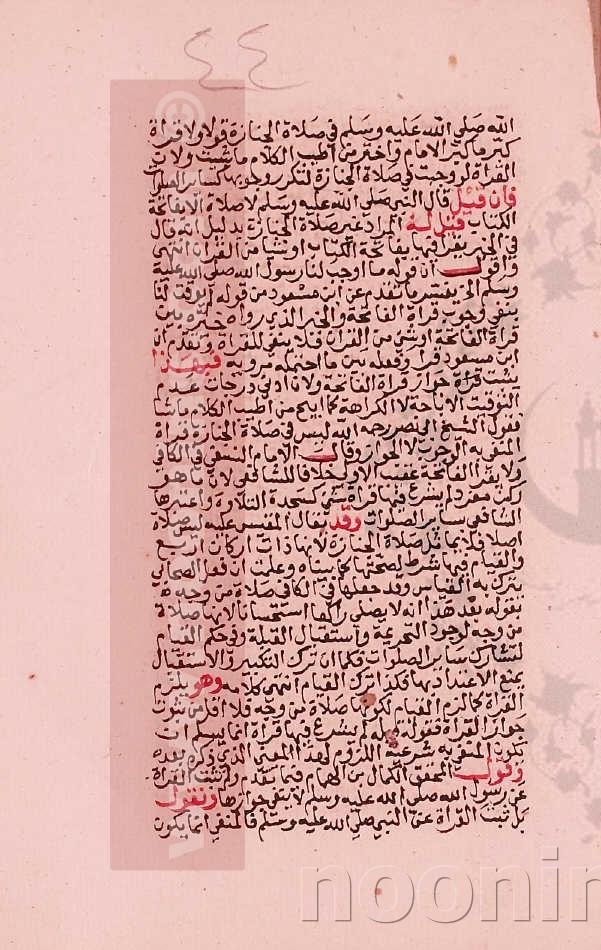 ٤٤
الله صلى الله عليه وسلم في صلاة الجنازة قولا ولا قراة
كبر ما كبر الامام واختر من اطيب الكلام ما شئت ولان
القراة لو وجبت في صلاة الجنازة لتكرر وجوبها كسائر الصلوات
فان قيل قال النبي صلى الله عليه وسلم لا صلاة الا بفاتحة
الكتاب قيل له المراد غير صلاة الجنازة بدليل انه قال
في الخبر يقرا فيها بفاتحة الكتاب او شيا من القران انتهى
واقول ان قوله ما اوجب لنا رسول الله صلى الله عليه
وسلم الخ يفسر ما تقدم عن ابن مسعود من قوله لم يوقت لنا
ينفي وجوب قراة الفاتحة والخبر الذي رواه خيره بين
قراة الفاتحة او شي من القران فلا ينفي للقراة وتقدم ان
ابن مسعود قرا وفعله بين ما احتمله مرويه فبهذا
يثبت قراة جواز قراة الفاتحة ولان ادنى درجات عدم
التوقيت الاباحة لا الكراهة كما ابيح من اطيب الكلام ما شا
فقول الشيخ ابي نصر رحمه الله ليس في صلاة الجنازة قراة
المنفي به الوجوب لا الجواز وقال الامام النسفي في الكافي
ولا يقرا الفاتحة عقب الاولى خلافا للشافعي لان ما هو
ركن مفرد لم يشرع فيها قراة شي كسجدة التلاوة واعتبرها
الشافعي بسائر الصلوات وقد يقال المقيس عليه ليس صلاة
اصلا فلا يماثل صلاة الجنازة لانها ذات اركان اربع
والقيام فيها شرط لصحتها كما بيناه وعلمت ان فعل الصحابي
يترك به القياس وقد جعلها في الكافي صلاة من وجه
بقوله بعد هذا انه لا يصلى راكبا استحسانا لانها صلاة
من وجه لوجود التحريمة واستقبال القبلة وفي حكم القيام
لتشارك سائر الصلوات فكما ان ترك التكبير والاستقبال
يمنع الاعتداد بها فكذا ترك القيام انتهى كلامه وهو يلزم
القراة كما لزم القيام لكونها صلاة من وجه فلا اقل من ثبوت
جواز القراة فقوله لم يشرع فيها قراة انما يسلم ان
يكون المنفي به شرعية اللزوم لهذا المعنى الذي ذكره بعده
وقول المحقق الكمال بن الهمام فيما تقدم ولم تثبت القراة
عن رسول الله صلى الله عليه وسلم لا ينفي جوازها ونقول
بل ثبت القراة عن النبي صلى الله عليه وسلم فالمنفي انما يكون
noonin